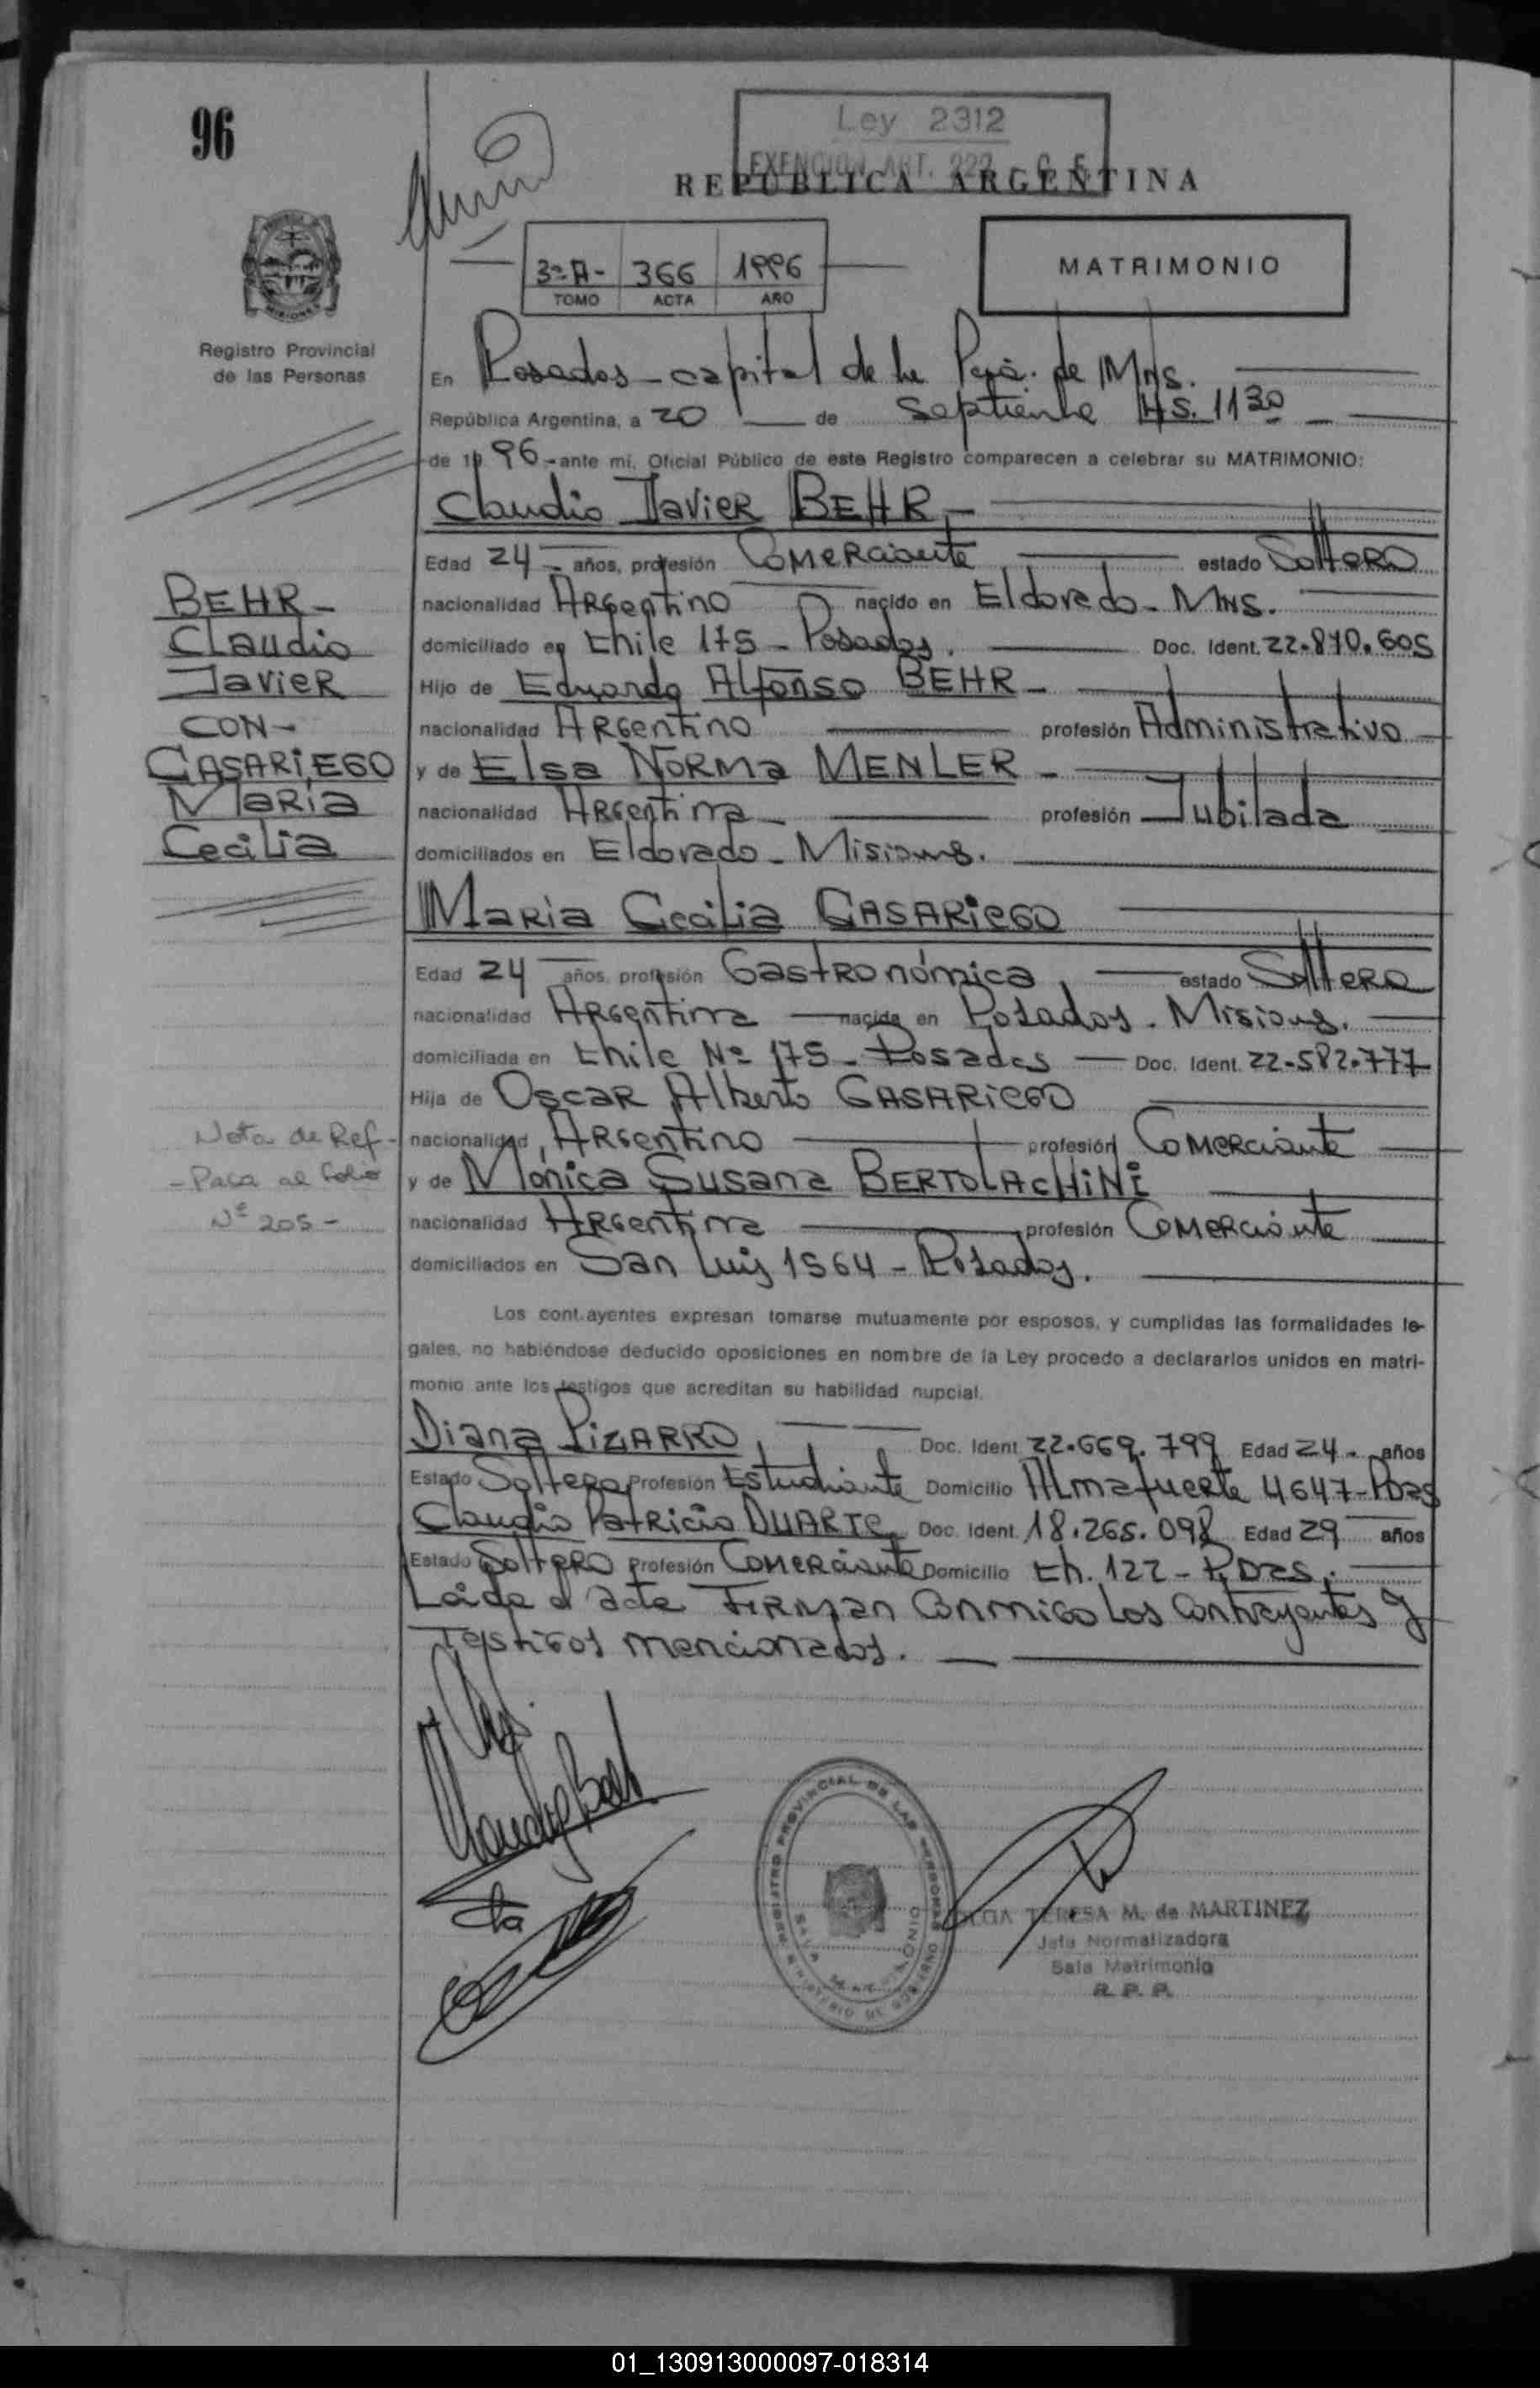 96
Ley 2312
EXENCION ART. 222 C. F.
REPUBLICA ARGENTINA
3º A- 366 1996
TOMO ACTA AÑO
MATRIMONIO
Registro Provincial
de las Personas
En Posadas - capital de la Pcia. de Mns.
República Argentina, a 20 de Septiembre HS. 11 30
de 19 96 - ante mí, Oficial Público de este Registro comparecen a celebrar su MATRIMONIO:
Claudio Javier BEHR -
Edad 24 - años, profesión Comerciante estado Soltero
nacionalidad Argentino nacido en Eldorado - Mns.
domiciliado en Chile 175 - Posadas. Doc. Ident. 22.870.605
Hijo de Eduardo Alfonso BEHR -
nacionalidad Argentino profesión Administrativo
y de Elsa Norma MENLER -
nacionalidad Argentina - profesión Jubilada
domiciliados en Eldorado - Misiones.
BEHR -
Claudio
Javier
CON -
CASARIEGO
Maria
Cecilia
Maria Cecilia CASARIEGO
Edad 24 años, profesión Gastronómica, estado Soltera
nacionalidad Argentina nacida en Posadas. Misiones.
domiciliada en Chile Nº 175 - Posadas Doc. Ident. 22.582.777
Hija de Oscar Alberto CASARIEGO
nacionalidad, Argentino profesión Comerciante
y de Monica Susana BERTOLACHINI
nacionalidad Argentina profesión Comerciante
domiciliados en San Luis 1564 - Posadas.
Nota de Ref -
- Pasa al folio
Nº 205 -
Los contrayentes expresan tomarse mutuamente por esposos, y cumplidas las formalidades le-
gales, no habiéndose deducido oposiciones en nombre de la Ley procedo a declararlos unidos en matri-
monio ante los testigos que acreditan su habilidad nupcial.
Diana PIZARRO Doc. Ident. 22.669.799 Edad 24 - años
Estado Soltera Profesión Estudiante Domicilio Almafuerte 4647 - Pdas
Claudio Patricio DUARTE Doc. Ident. 18.265.098 Edad 29 años
Estado Soltero Profesión Comerciante Domicilio Ch. 122 - Pdas.
Leida el acta Firman conmigo los contrayentes y
Testigos mencionados.
REGISTRO PROVINCIAL DE LAS PERSONAS
MINISTERIO DE GOBIERNO
SALA MATRIMONIO
OLGA TERESA M. de MARTINEZ
Jefa Normalizadora
Sala Matrimonio
R. P. P.
01_130913000097-018314